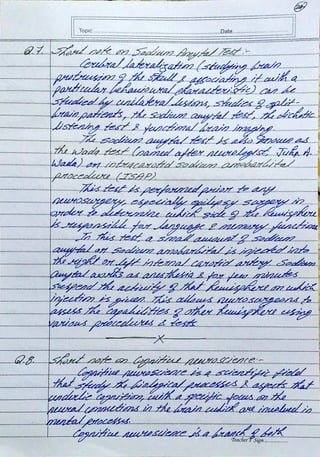 Topic Date
Q.7. Short note on Sodium Amytal Test :-
Cerebral lateralization (studying brain
protrusion of the skull & associating it with a
particular behavioural characteristic) can be
studied by unilateral lesions, studies of split-
brain patients, the sodium amytal test, the dichotic
listening test & functional brain imaging.
The sodium amytal test is also known as
the Wada test (named after neurologist, Juhn A.
Wada) or intracarotid sodium amobarbital
procedure (ISAP).
This test is performed prior to any
neurosurgery, especially epilepsy surgery in
order to determine which side of the hemisphere
is responsible for language & memory functions
In this test, a small amount of sodium
amytal or sodium amobarbital is injected into
the right or left internal carotid artery. Sodium
amytal as anesthesia & for few minutes
suspend the activity of that hemisphere on which
injection is given. This allows neurosurgeons to
assess the capabilities of other hemisphere using
various procedures & tests.
x
Q.8. Short note on Cognitive neuroscience :-
Cognitive neuroscience is a scientific field
that study the biological processes & aspects that
underlie cognition, with a specific focus on the
neural connections in the brain which are involved in
mental processes.
Cognitive neuroscience is a branch of both
Teacher's Sign